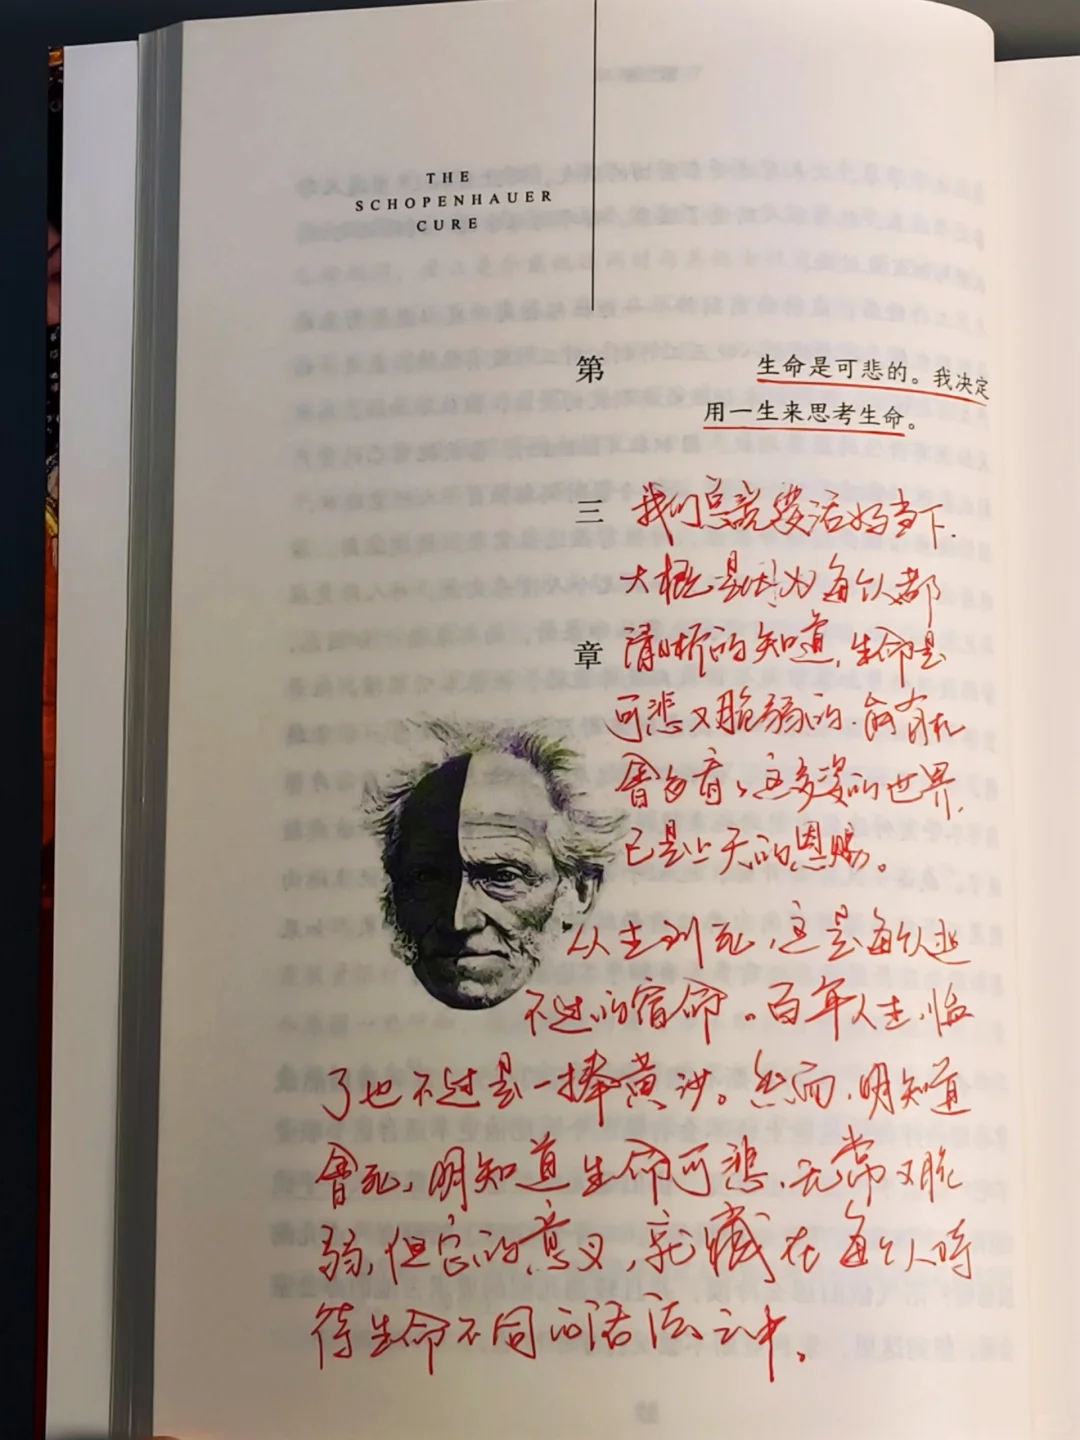 THE
SCHOPENHAUER
CURE
第
三
章
生命是可悲的。我决定
用一生来思考生命。
我们总说要活好当下.
大概是因为每个人都
清晰的知道,生命是
可悲又脆弱的.能有机
会多看看这多姿的世界,
已是上天的恩赐。
从生到死,这是每个人逃
不过的宿命。百年人生,临
了也不过是一捧黄沙。然而,明知道
会死,明知道生命可悲、无常又脆
弱,但它的意义,就藏在每个人对
待生命不同的活法之中。